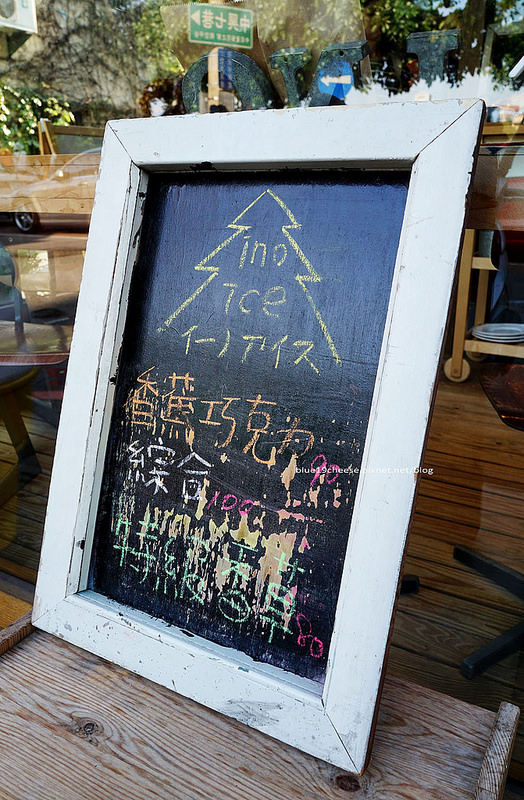 ino
ice
イーノアイス
香蕉巧克力 90
綜合 100
80
blue19cheese.pixnet.net/blog